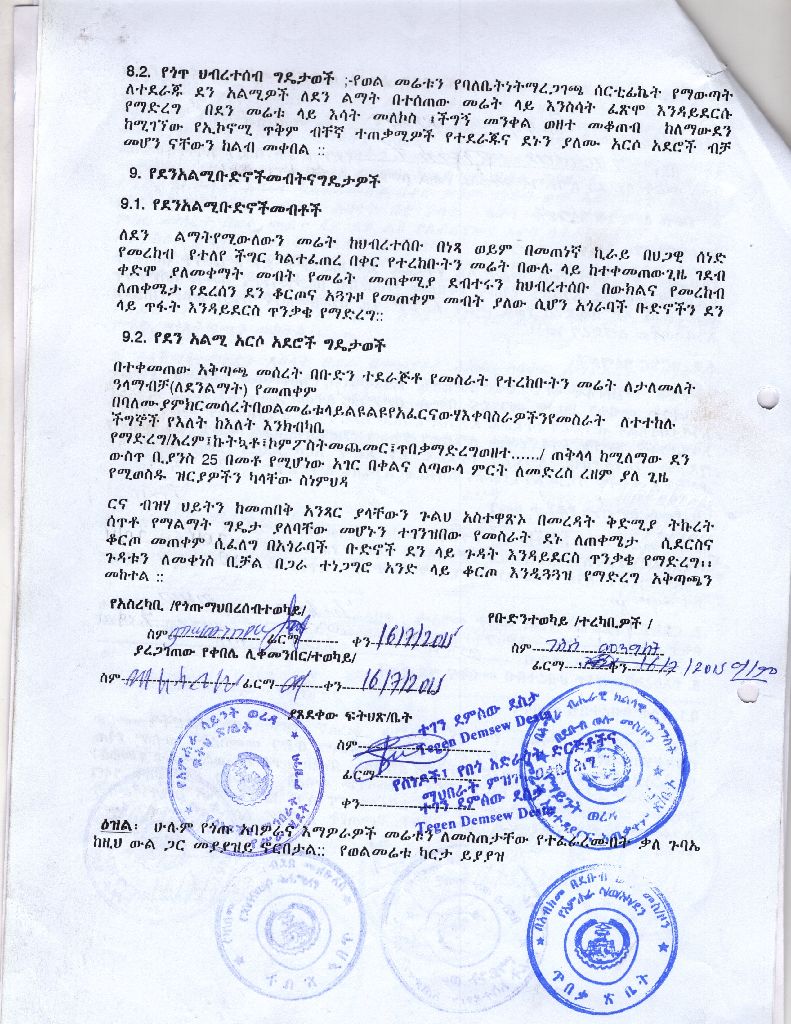 8.2. የጎጥ ህብረተሰብ ግዴታወች ;-የወል መሬቱን የባለቤትነትማረጋገጫ ሰርቲፊኬት የማውጣት
ለተደራጁ ደን አልሚዎች ለደን ልማት በተሰጠው መሬት ላይ እንስሳት ፈጽሞ እንዳይደርሱ
የማድረግ በደን መሬቱ ላይ እሳት መለኮስ ፤ችግኝ መንቀል ወዘተ መቆጠብ ከለማውደን
ከሚገኘው የኢኮኖሚ ጥቅም ብቸኛ ተጠቃሚዎች የተደራጁና ደኑን ያለሙ አርሶ አደሮች ብቻ
መሆን ናቸውን ከልብ መቀበል ::
9. የደንአልሚቡድኖችመብትናግዴታዎች
9.1. የደንአልሚቡድኖችመብቶች
ለደን ልማትየሚውለውን መሬት ከህብረተሰቡ በነጻ ወይም በመጠነኛ ኪራይ በህጋዊ ሰነድ
የመረከብ የተለየ ችግር ካልተፈጠረ በቀር የተረከቡትን መሬት በውሉ ላይ ከተቀመጠውጊዜ ገደብ
ቀድሞ ያለመቀማት መብት የመሬት መጠቀሚያ ደብተሩን ከህብረተሰቡ በውክልና የመረከብ
ለጠቀሜታ የደረሰን ደን ቆርጦና አጓጉዞ የመጠቀም መብት ያለው ሲሆን አጎራባች ቡድኖችን ደን
ላይ ጥፋት እንዳይደርስ ጥንቃቄ የማድረግ::
9.2. የደን አልሚ አርሶ አደሮች ግዴታወች
በተቀመጠው አቅጣጫ መሰረት በቡድን ተደራጅቶ የመስራት የተረከቡትን መሬት ለታለመለት
ዓላማብቻ(ለደንልማት) የመጠቀም
በባለሙያምክርመሰረትበወልመሬቱላይልዩልዩየአፈርናውሃእቀባስራዎችንየመስራት ለተተከሉ
ችግኞች የእለት ከእለት እንክብካቤ
የማድረግ/አረም፤ኩትኳቶ፤ኮምፖስትመጨመር፤ጥበቃማድረግወዘተ....../ ጠቅላላ ከሚለማው ደን
ውስጥ ቢያንስ 25 በመቶ የሚሆነው አገር በቀልና ለጣውላ ምርት ለመድረስ ረዘም ያለ ጊዜ
የሚወስዱ ዝርያዎችን ካላቸው ስነምህዳ
ርና ብዝሃ ህይትን ከመጠበቅ አንጻር ያላቸውን ጉልህ አስተዋጽኦ በመረዳት ቅድሚያ ትኩረት
ሰጥቶ የማልማት ግዴታ ያለባቸው መሆኑን ተገንዝበው የመስራት ደኑ ለጠቀሜታ ሲደርስና
ቆርጦ መጠቀም ሲፈለግ በአጎራባች ቡድኖች ደን ላይ ጉዳት እንዳይደርስ ጥንቃቄ የማድረግ፡፡
ጉዳቱን ለመቀነስ ቢቻል በጋራ ተነጋግሮ አንድ ላይ ቆርጦ እንዲጓጓዝ የማድረግ አቅጣጫን
መከተል ::
የአስረካቢ /የጎጡማህበረሰብተወካይ/
የቡድንተወካይ /ተረካቢዎች /
ስም ፊርማ ቀን 16/7/2015
ስም
ያረጋገጠው የቀበሌ ሊቀመንበር/ተወካይ/
ፊርማ ቀን 16/7/2015
ስም ፊርማ ቀን 16/7/2015
ያጸደቀው ፍትህጽ/ቤት
ስም
ፊርማ
ቀን
ተገን ደምሰው ደስታ
Tegen Demsew Desta
የሰነዶች፤ የበጎ አድራጎት ድርጅቶችና
ተገን ደምሰው ደስታ
Tegen Demsew Desta
ዕዝል፡ ሁሉም የጎጡ አባዎራና እማዎራዎች መሬቱን ለመስጠታቸው የተፈራረሙበት ቃለ ጉባኤ
ከዚህ ውል ጋር መያያዝይ ኖርበታል:: የወልመሬቱ ካርታ ይያያዝ